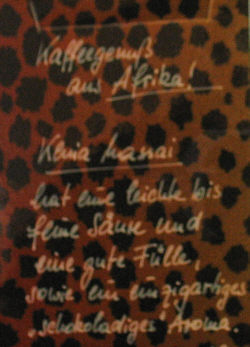 Kaffeegenuß
aus Afrika!
Kenia Massai
hat eine leichte bis
feine Säure und
eine gute Fülle,
sowie ein einzigartiges
„schokoladiges" Aroma.